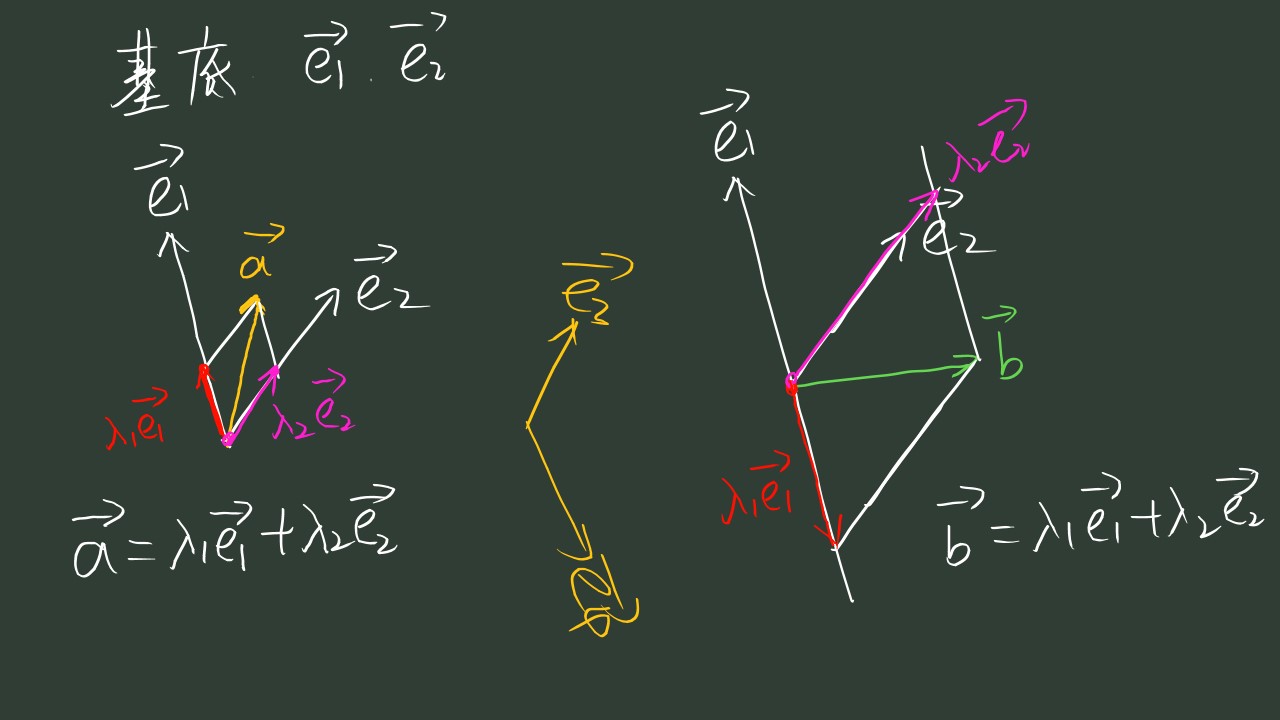 基底 e₁⃗ . e₂⃗
e₁⃗
a⃗
e₂⃗
λ₁e₁⃗
λ₂e₂⃗
a⃗ = λ₁e₁⃗ + λ₂e₂⃗
e₁⃗
λ₂e₂⃗
e₂⃗
b⃗
λ₁e₁⃗
b⃗ = λ₁e₁⃗ + λ₂e₂⃗